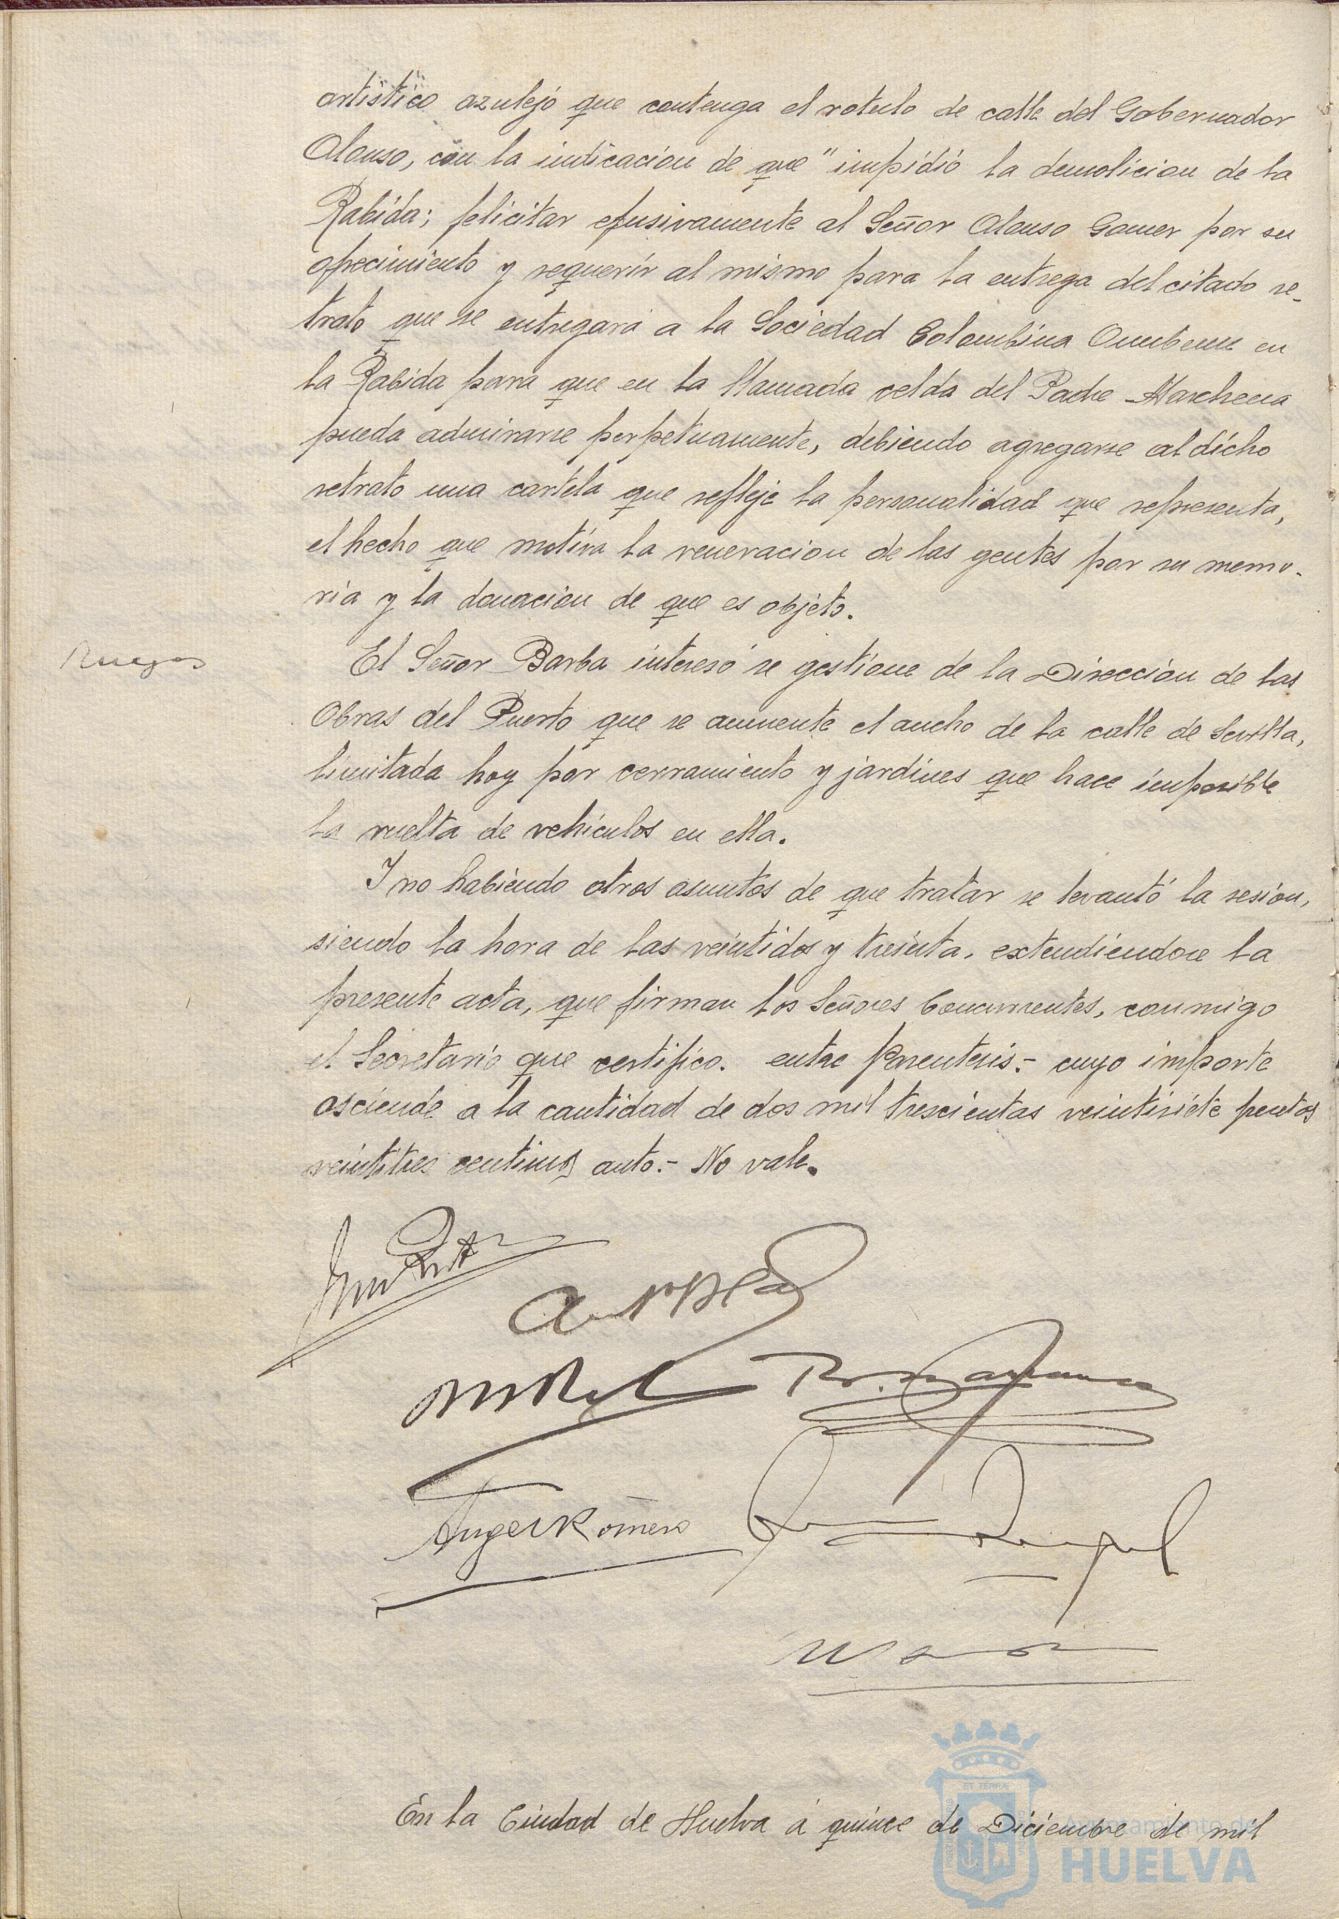 artístico azulejo que contenga el rotulo de calle del Gobernador
Alonso, con la indicacion de que "impidió la demolicion de la
Rabida; felicitar efusivamente al Señor Alonso Gamer por su
ofrecimiento y requerir al mismo para la entrega del citado re-
trato que se entregará a la Sociedad Colombina Onubense en
la Rabida para que en la llamada celda del Padre Marchena
pueda admirarse perpetuamente, debiendo agregarse al dicho
retrato una cartela que refleje la personalidad que representa,
el hecho que motiva la veneracion de las gentes por su memo-
ria y la donacion de que es objeto.
Ruegos
El Señor Barba interesó se gestione de la Direccion de las
Obras del Puerto que se aumente el ancho de la calle de Sevilla,
limitada hoy por cerramiento y jardines que hace imposible
la vuelta de vehiculos en ella.
Y no habiendo otros asuntos de que tratar se levantó la sesion,
siendo la hora de las veintidos y treinta, extendiendose la
presente acta, que firman los Señores Concurrentes, conmigo
el Secretario que certifico. entre parentesis.- cuyo importe
asciende a la cantidad de dos mil trescientas veintisiete pesetas
veintitres centimos auto.- No vale.
Angel Romero
En la Ciudad de Huelva á quince de Diciembre de mil
Ayuntamiento de
HUELVA